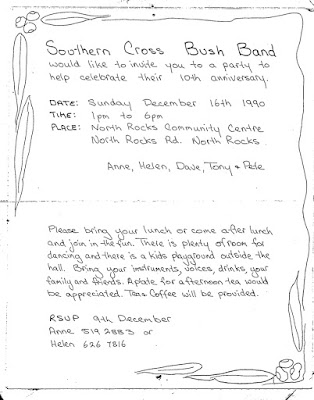 Southern Cross Bush Band
would like to invite you to a party to
help celebrate their 10th anniversary.
DATE: Sunday December 16th 1990
TIME: 1pm to 6pm
PLACE: North Rocks Community Centre
North Rocks Rd. North Rocks
Anne, Helen, Dave, Tony & Pete
Please bring your lunch or come after lunch
and join in the fun. There is plenty of room for
dancing and there is a kids playground outside the
hall. Bring your instruments, voices, drinks, your
family and friends. A plate for afternoon tea would
be appreciated. Tea & Coffee will be provided.
RSVP 9th December
Anne 519 2883 or
Helen 626 7816